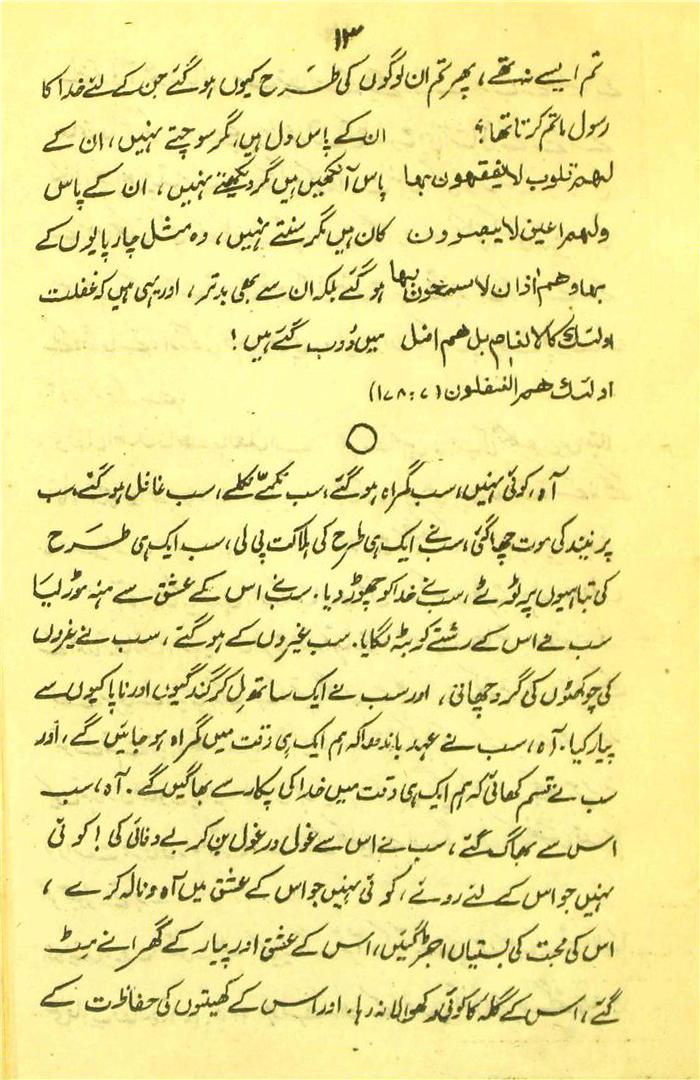 ۱۳
تم ایسے نہ تھے، پھر تم ان لوگوں کی طرح کیوں ہو گئے جن کے لئے خدا کا
رسول ماتم کرتا تھا؟ ان کے پاس دل ہیں، مگر سوچتے نہیں، ان کے
لہم قلوب لا یفقھون بہا پاس آنکھیں ہیں مگر دیکھتے نہیں، ان کے پاس
ولہم اعین لا یبصرون کان ہیں مگر سنتے نہیں، وہ مثل چارپایوں کے
بہا وھم اٰذان لا یسمعون بہا ہو گئے بلکہ ان سے بھی بدتر، اور یہی ہیں کہ غفلت
اولٰئک کالانعام بل ھم اضل میں ڈوب گئے ہیں!
اولٰئک ھم الغٰفلون (۷: ۱۷۸)
آہ، کوئی نہیں، سب گمراہ ہو گئے، سب نکمے نکلے، سب غافل ہو گئے، سب
پر نیند کی موت چھا گئی، سب نے ایک ہی طرح کی ہلاکت پی لی، سب ایک ہی طرح
کی تباہیوں پر ٹوٹے، سب نے خدا کو چھوڑ دیا۔ سب نے اس کے عشق سے منہ موڑ لیا
سب نے اس کے رشتے کو بٹہ لگایا۔ سب غیروں کے ہو گئے، سب نے غیروں
کی چوکھٹوں کی گرد چھانی، اور سب نے ایک ساتھ مل کر گندگیوں اور ناپاکیوں سے
پیار کیا۔ آہ، سب نے عہد باندھا کہ ہم ایک ہی وقت میں گمراہ ہو جائیں گے، اور
سب نے قسم کھائی کہ ہم ایک ہی وقت میں خدا کی پکار سے بھاگیں گے۔ آہ، سب
اس سے بھاگ گئے، سب نے اس سے غول در غول بن کر بے وفائی کی! کوئی
نہیں جو اس کے لئے روئے، کوئی نہیں جو اس کے عشق میں آہ و نالہ کرے،
اس کی محبت کی بستیاں اجڑ گئیں، اس کے عشق اور پیار کے گھرانے مٹ
گئے، اس کے گلہ کا کوئی رکھوالا نہ رہا۔ اور اس کے کھیتوں کی حفاظت کے